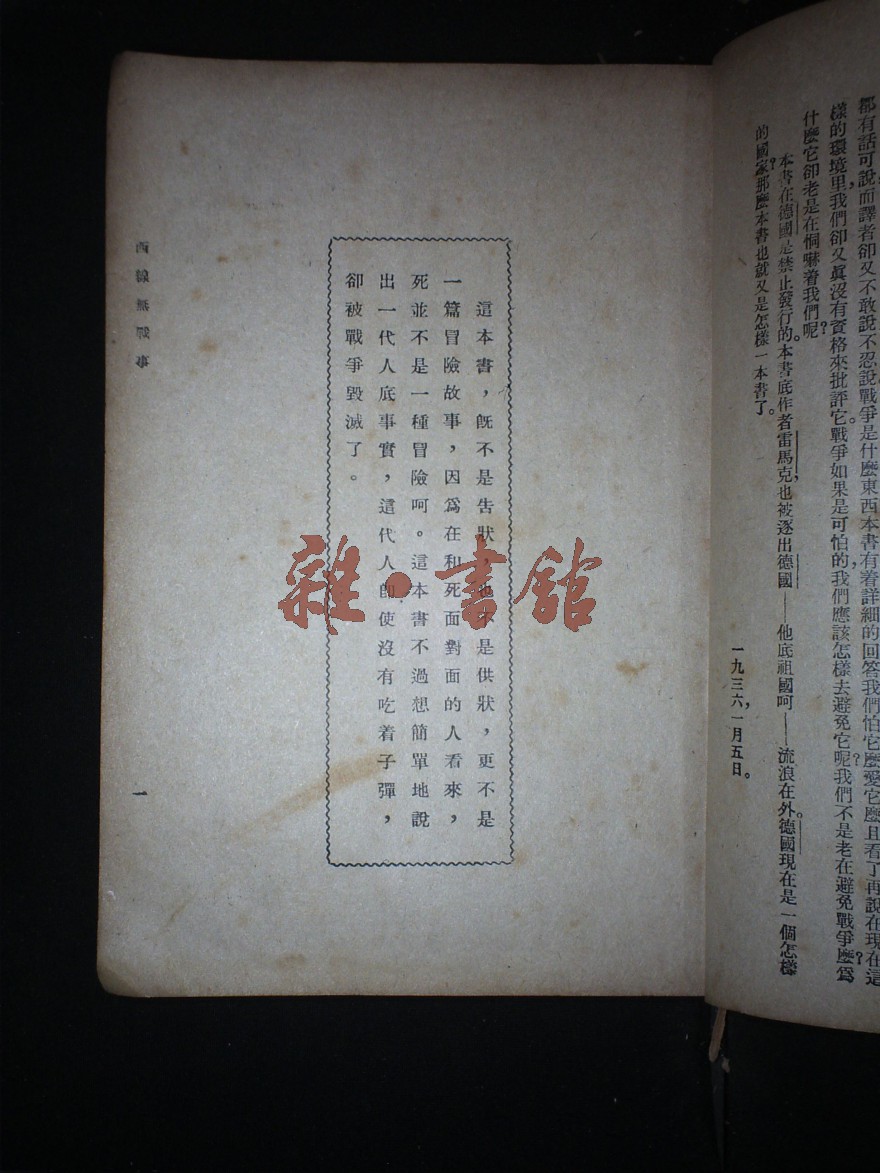 都有話可說，而譯者卻又不敢說不忍說戰爭是什麼東西本書有着詳細的回答我們怕它麼？愛它麼？且看了再說在現在這
樣的環境里，我們卻又眞沒有資格來批評它。戰爭如果是可怕的，我們應該怎樣去避免它呢？我們不是老在避免戰爭麼？爲
什麼它卻老是在恫嚇着我們呢？
本書在德國是禁止發行的。本書底作者雷馬克，也被逐出德國——他底祖國呵——流浪在外。德國現在是一個怎樣
的國家？那麼本書也就又是怎樣一本書了。
一九三六，一月五日。
這本書，旣不是告狀，也不是供狀，更不是
一篇冒險故事，因爲在和死面對面的人看來，
死並不是一種冒險呵。這本書不過想簡單地說
出一代人底事實，這代人卽使沒有吃着子彈，
卻被戰爭毀滅了。
西線無戰事
一
雜·書館